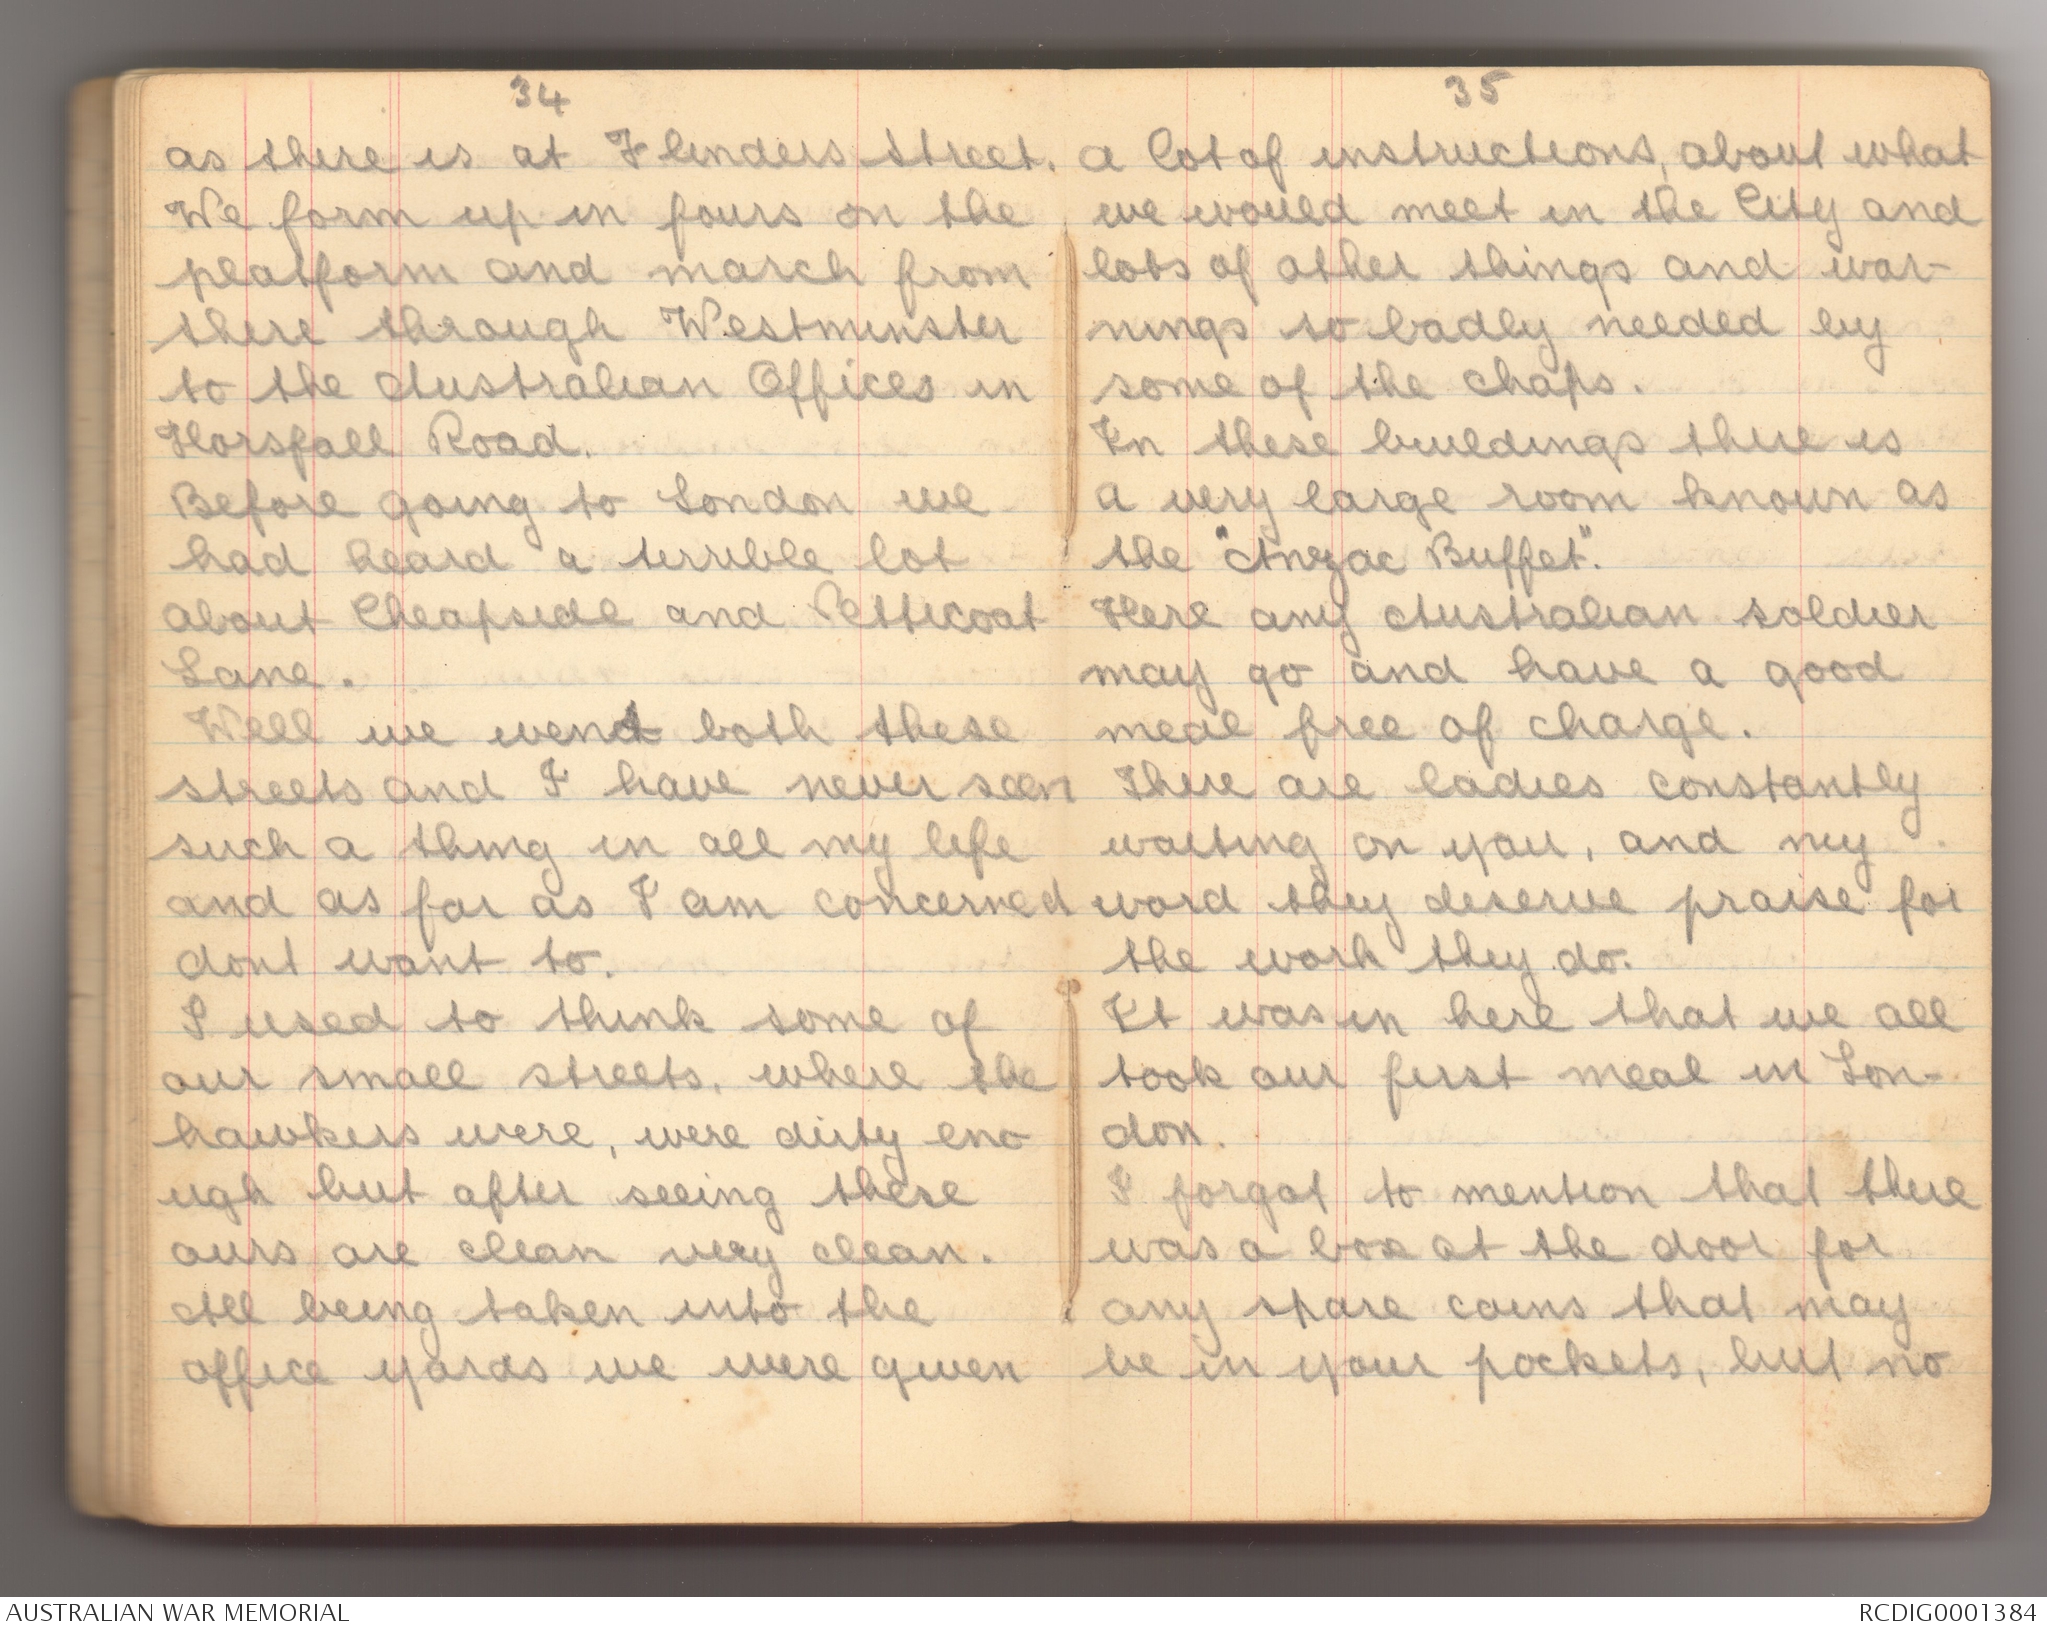 34
as there is at Flinders street.
We form up in fours on the
platform and march from
there through Westminster
to the Australian Offices in
Horsfall Road.
Before going to London we
had heard a terrible lot
about Cheapside and Petticoat
Lane.
Well we went both these
streets and I have never seen
such a thing in all my life
and as far as I am concerned
dont want to.
I used to think some of
our small streets, where the
hawkers were, were dirty eno
ugh but after seeing these
ours are clean very clean.
All being taken into the
office yards we were given
35
a lot of instructions, about what
we would meet in the City and
lots of other things and war-
nings so badly needed by
some of the chaps.
In these buildings there is
a very large room known as
the "Anzac Buffet".
Here any Australian soldier
may go and have a good
meal free of charge.
There are ladies constantly
waiting on you, and my
word they deserve praise for
the work they do.
It was in here that we all
took our first meal in Lon-
don.
I forgot to mention that there
was a box at the door for
any spare coins that may
be in your pockets, but no
AUSTRALIAN WAR MEMORIAL
RCDIG0001384